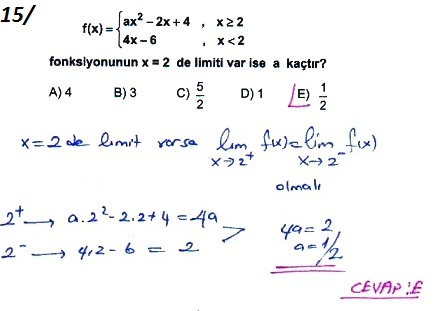 15/
f(x) = { ax² − 2x + 4 , x ≥ 2
4x − 6 , x < 2
fonksiyonunun x = 2 de limiti var ise a kaçtır?
A) 4 B) 3 C) 5/2 D) 1 E) 1/2
x = 2 de limit varsa lim x→2⁺ f(x) = lim x→2⁻ f(x)
olmalı
2⁺ → a.2² − 2.2 + 4 = 4a
2⁻ → 4.2 − 6 = 2
4a = 2
a = 1/2
CEVAP:E